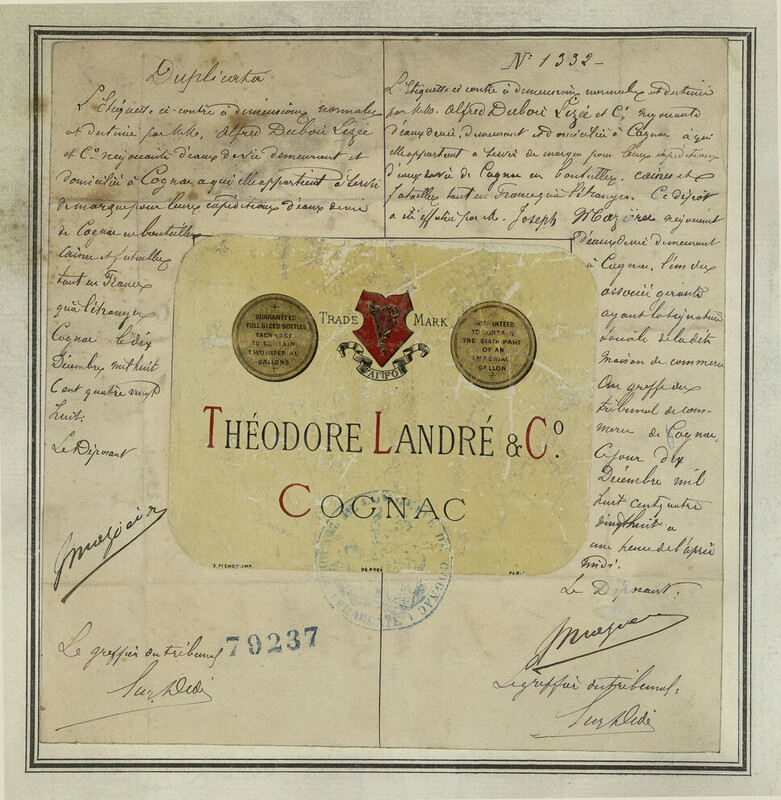 Duplicata
L'Etiquette ci-contre à dimensions normales
est destiné par MM. Alfred Dubois Lizée
et Cie négociants d'eaux de vie demeurant et
domiciliés à Cognac a qui elle appartient à servir
de marque pour leurs expéditions d'eaux de vie
de Cognac en bouteilles
caisses et futailles
tant en France
qu'à l'étranger
Cognac le dix
Décembre mil huit
Cent quatre vingt
huit.
Le Déposant
Le greffier du tribunal
79237
No 1332-
L'Etiquette ci contre à dimensions normales est destiné
par MM. Alfred Dubois Lizée et Cie négociants
d'eaux de vie, demeurant et domiciliés à Cognac à qui
elle appartient a servir de marque pour leurs expéditions
d'eaux de vie de Cognac en bouteilles, caisses et
futailles tant en France qu'à l'étranger. Ce dépôt
a été effectué par M. Joseph Mazière négociant
d'eaux de vie demeurant
à Cognac, l'un des
associés gérants
ayant la signature
sociale de la dite
maison de commerce
Au greffe du
tribunal de com-
merce de Cognac,
Ce jour dix
Décembre mil
huit cent quatre
vingt huit a
une heure de l'après
midi.
Le Déposant.
Le greffier du tribunal,
GUARANTEED
FULL SIZED BOTTLES
EACH CASE
TO CONTAIN
TWO IMPERIAL
GALLONS
TRADE MARK
GUARANTEED
TO CONTAIN
THE SIXTH PART
OF AN
IMPERIAL
GALLON
THÉODORE LANDRÉ & Co.
COGNAC
F. PICHOT, IMP.
DÉPOSÉ
PARIS
DE COGNAC
CHARENTE